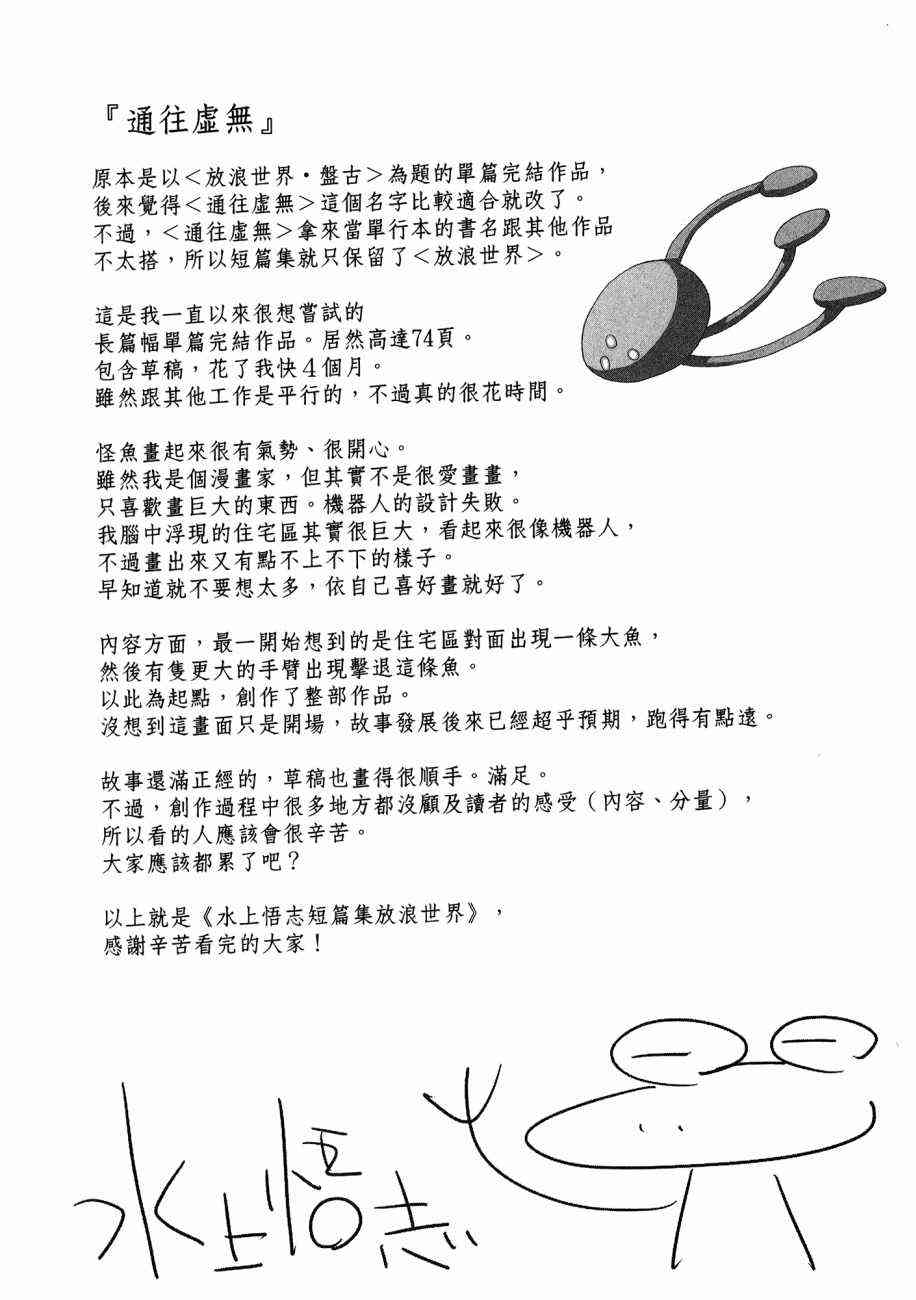 『通往虛無』
原本是以＜放浪世界・盤古＞為題的單篇完結作品，
後來覺得＜通往虛無＞這個名字比較適合就改了。
不過，＜通往虛無＞拿來當單行本的書名跟其他作品
不太搭，所以短篇集就只保留了＜放浪世界＞。
這是我一直以來很想嘗試的
長篇幅單篇完結作品。居然高達74頁。
包含草稿，花了我快4個月。
雖然跟其他工作是平行的，不過真的很花時間。
怪魚畫起來很有氣勢、很開心。
雖然我是個漫畫家，但其實不是很愛畫畫，
只喜歡畫巨大的東西。機器人的設計失敗。
我腦中浮現的住宅區其實很巨大，看起來很像機器人，
不過畫出來又有點不上不下的樣子。
早知道就不要想太多，依自己喜好畫就好了。
內容方面，最一開始想到的是住宅區對面出現一條大魚，
然後有隻更大的手臂出現擊退這條魚。
以此為起點，創作了整部作品。
沒想到這畫面只是開場，故事發展後來已經超乎預期，跑得有點遠。
故事還滿正經的，草稿也畫得很順手。滿足。
不過，創作過程中很多地方都沒顧及讀者的感受（內容、分量），
所以看的人應該會很辛苦。
大家應該都累了吧？
以上就是《水上悟志短篇集放浪世界》，
感謝辛苦看完的大家！
水上悟志